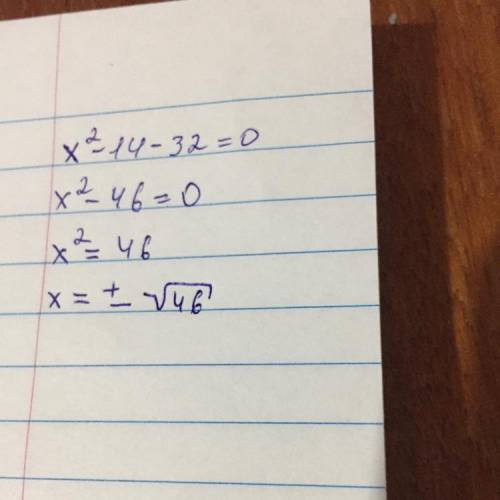 x²-14-32=0
x²-46=0
x²=46
x=±√46